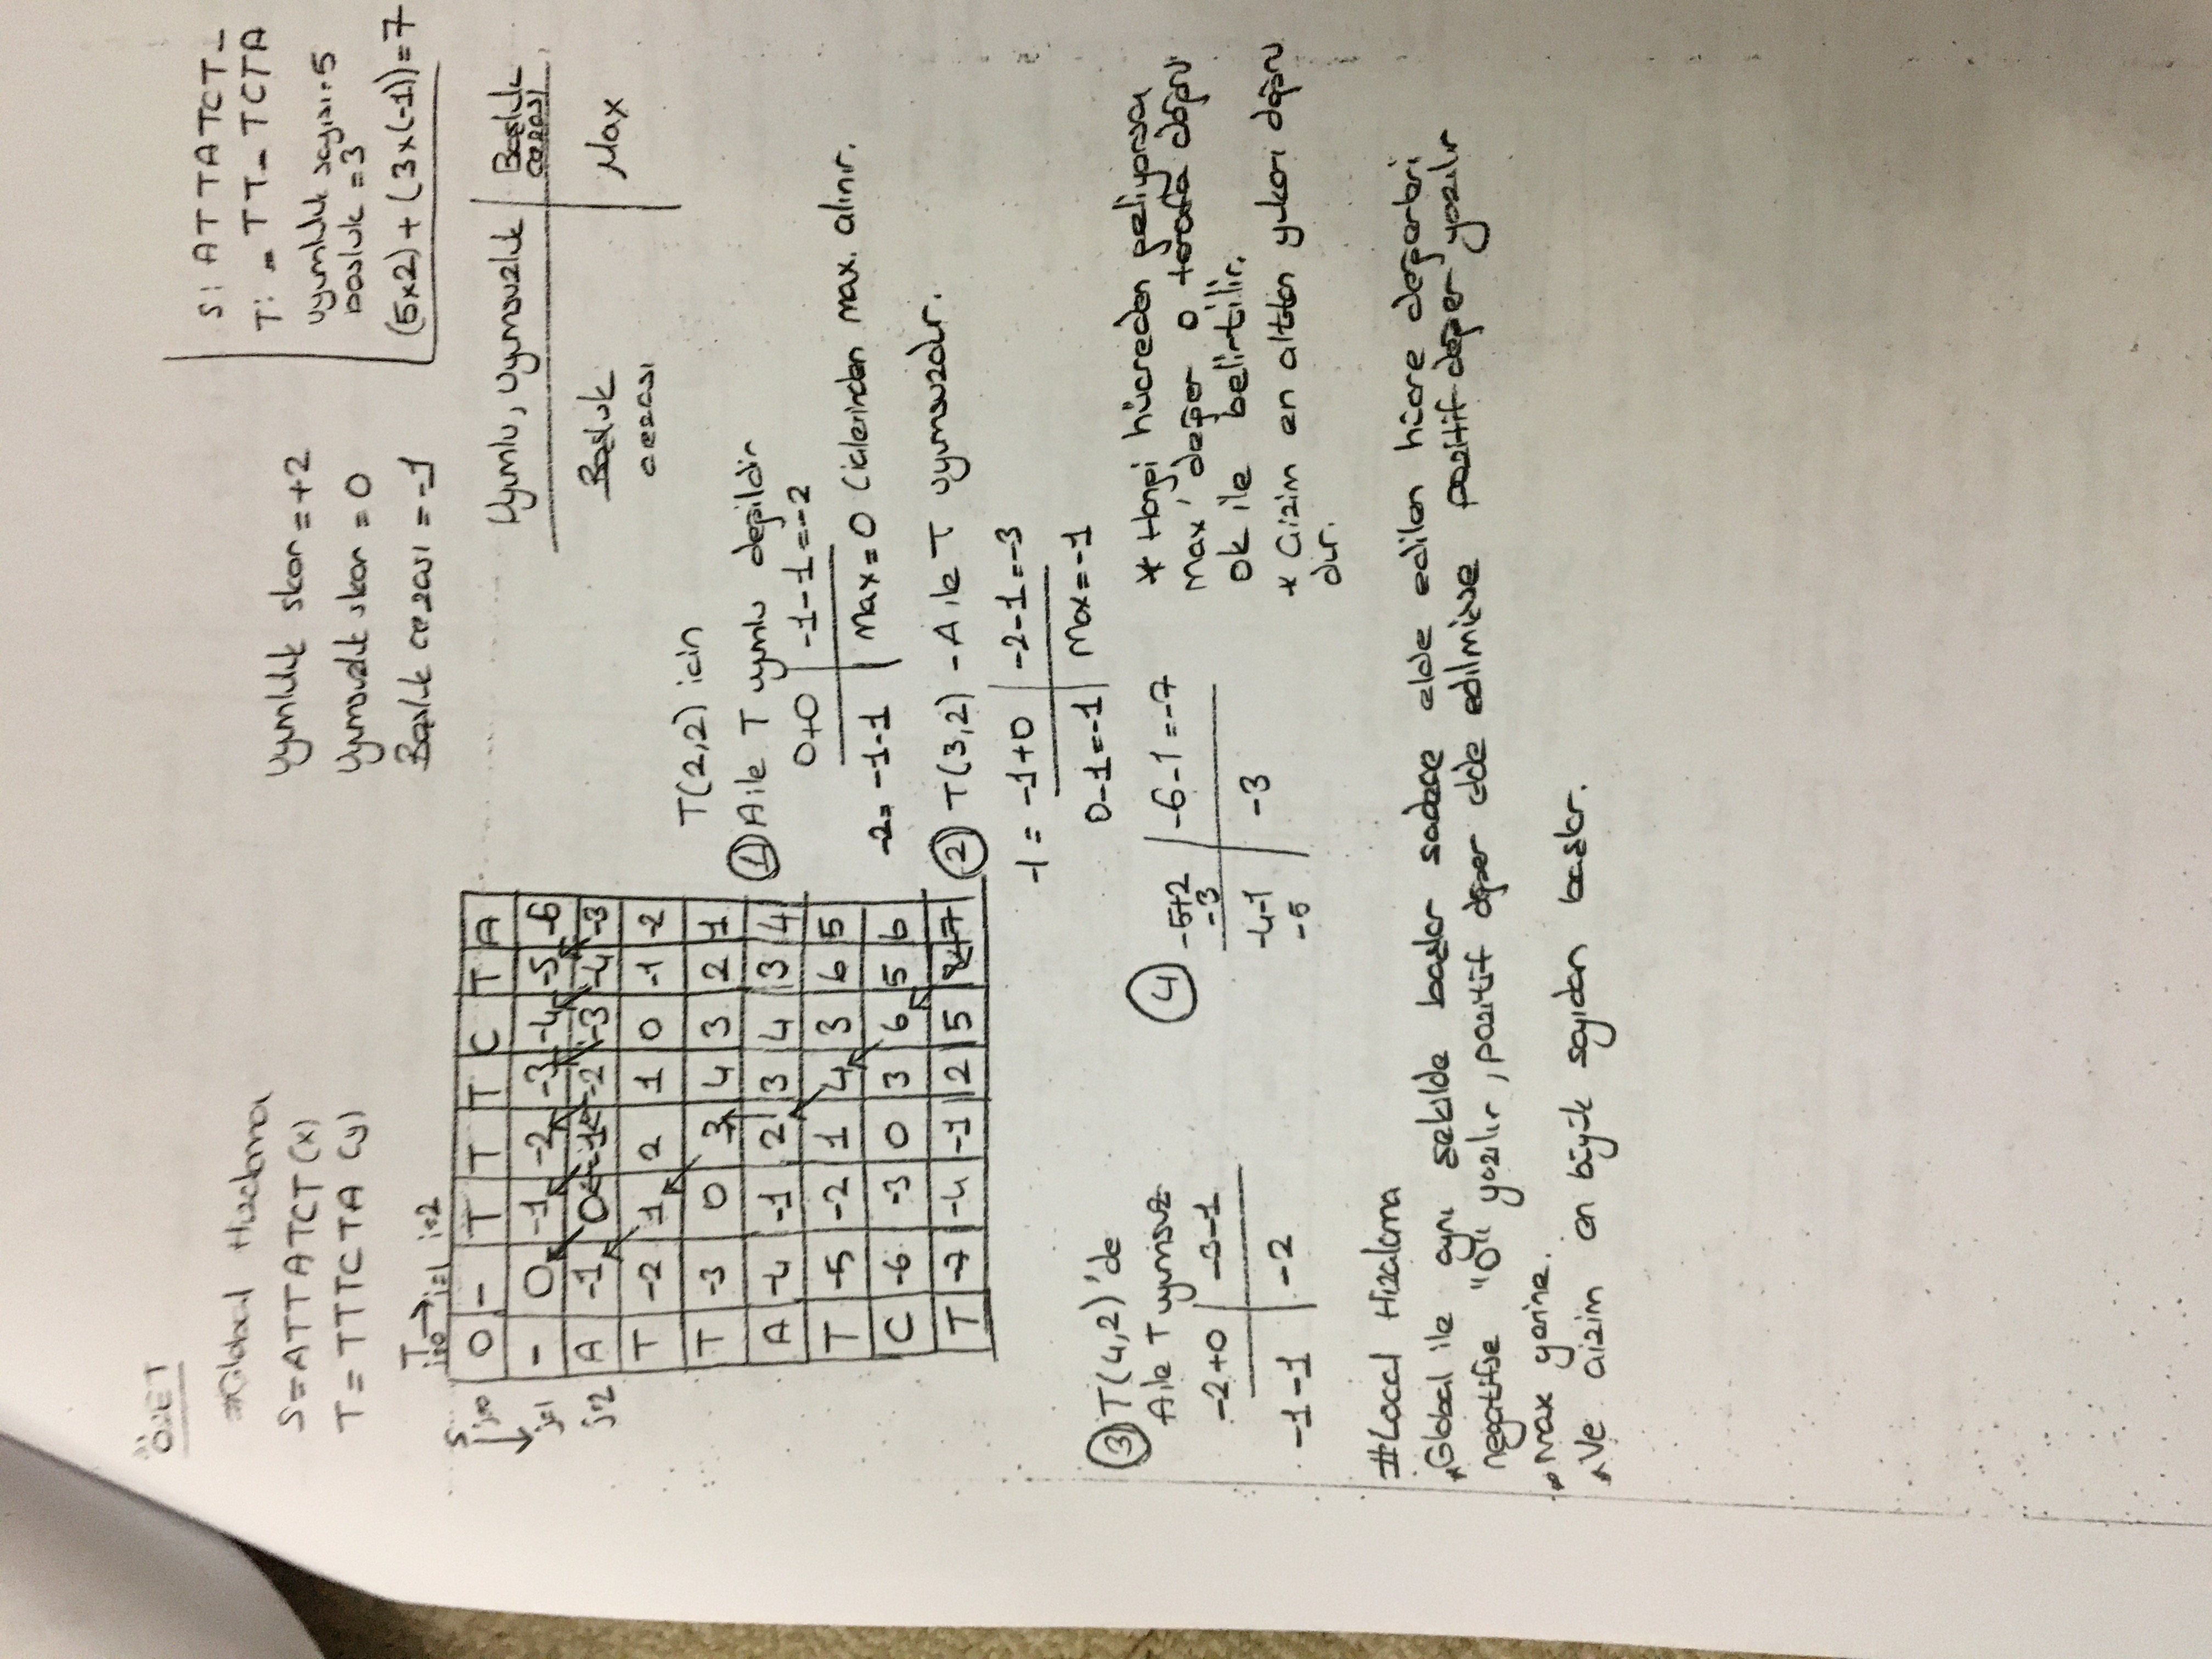 ÖZET
#Global Hizalama
S=ATTATCT (x)
T=TTTCTA (y)
Uyumluluk skor = +2
Uyumsuzluk skor = 0
Boşluk cezası = -1
S: ATTATCT_
T: _TT_TCTA
uyumluluk sayısı=5
boşluk = 3
(5x2) + (3x(-1))=7
T →
i=0 i=1 i=2
S ↓
j=0 O - T T T C T A
j=1 - 0 -1 -2 -3 -4 -5 -6
j=2 A -1 0 -1 -2 -3 -4 -3
T -2 1 2 1 0 -1 -2
T -3 0 3 4 3 2 1
A -4 -1 2 3 4 3 4
T -5 -2 1 4 3 6 5
C -6 -3 0 3 6 5 6
T -7 -4 -1 2 5 8 7
Uyumlu, Uyumsuzluk | Boşluk cezası
Boşluk cezası | Max
T(2,2) icin
① A ile T uyumlu değildir
0+0 | -1-1=-2
-2= -1-1 | Max=0 (iclerinden max. alınır.
② T(3,2) - A ile T uyumsuzdur.
-1 = -1+0 | -2-1=-3
0-1=-1 | Max=-1
③ T(4,2)'de
A ile T uyumsuz
-2+0 | -3-1
-1-1 | -2
④ -5+2 | -6-1=-7
-3
-4-1 | -3
-5
* Hangi hücreden geliyorsa
Max' değer o tarafa doğru
ok ile belirtilir.
* Cizim en alttan yukarı doğru
dur.
#Local Hizalama
Global ile aynı şekilde başlar sadece elde edilen hücre değerleri
negatifse "0" yazılır, pozitif değer elde edilmişse pozitif değer yazılır
max yerine.
Ve cizim en büyük sayıdan başlar.